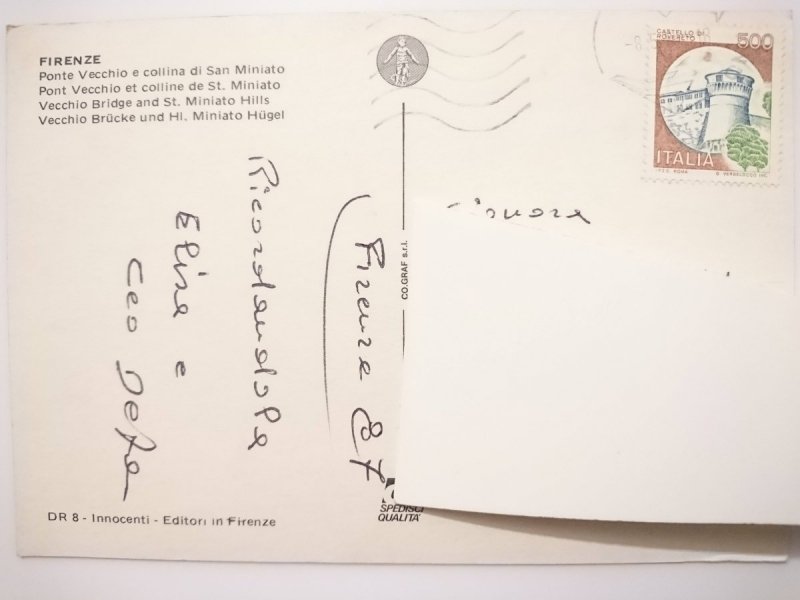 FIRENZE
Ponte Vecchio e collina di San Miniato
Pont Vecchio et colline de St. Miniato
Vecchio Bridge and St. Miniato Hills
Vecchio Brücke und Hl. Miniato Hügel
CASTELLO DI
ROVERETO
500
ITALIA
I.P.Z.S. ROMA
Firenze 87
Ricordandola
Elisa e
CO.GRAF s.r.l.
SPEDISCI
QUALITA'
DR 8 - Innocenti - Editori in Firenze